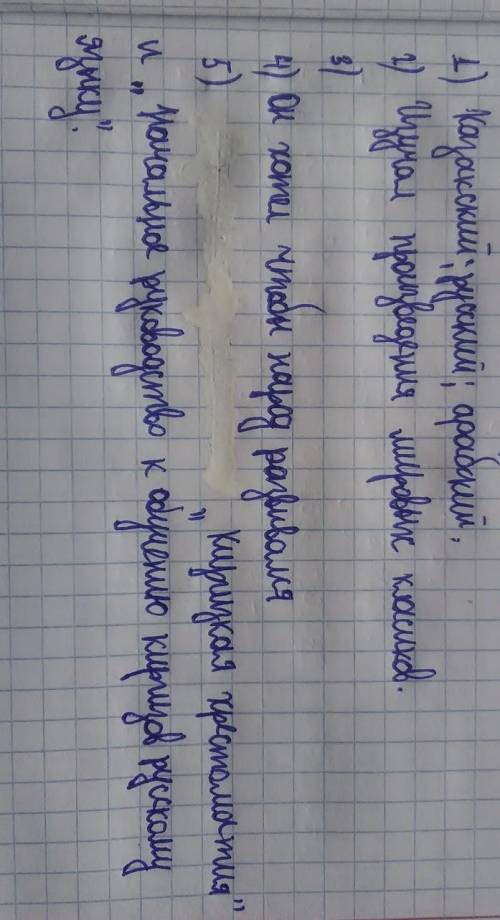 1) Казахский; руский; арабский;
2) Изучал произведения мировых класиков.
3)
4) Он хотел чтобы народ развивался
5) "Киргизкая хрестоматия"
и "Начальное руководство к обучению киргизов рускому
языку".